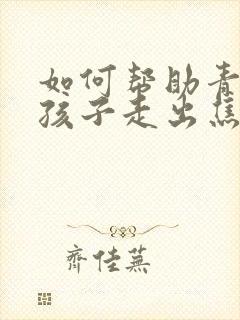 如何帮助青
孩子走出焦
齐佳芜